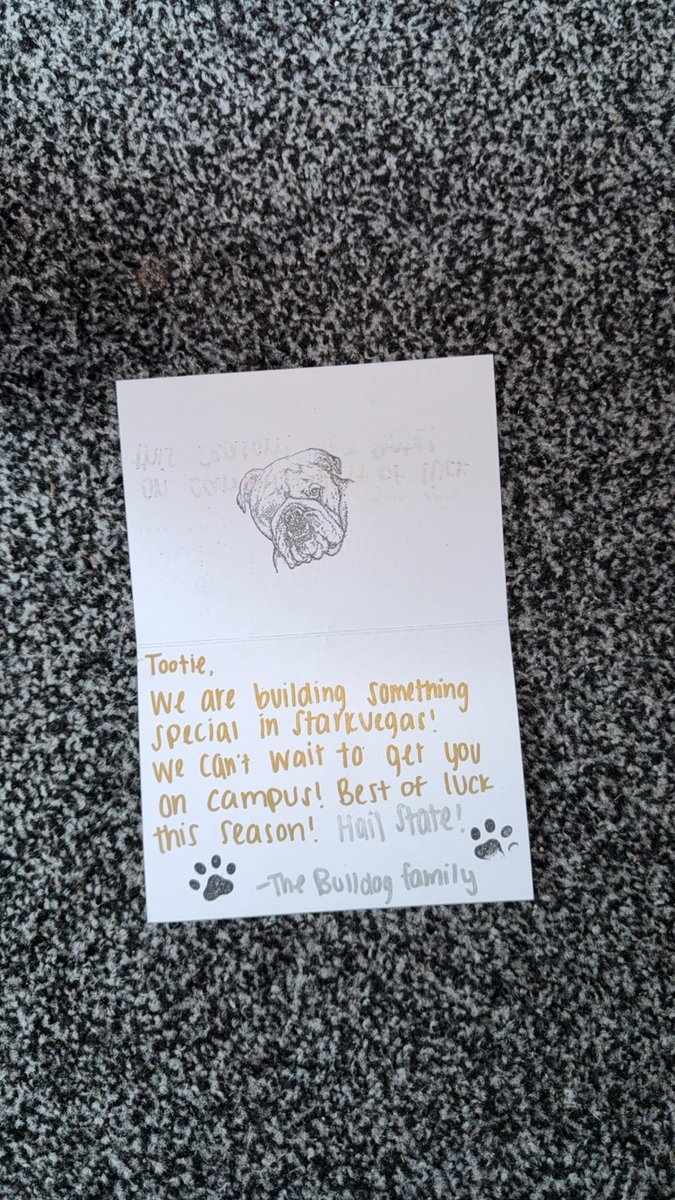 Tootie,
We are building something
special in Starkvegas!
We can't wait to get you
on campus! Best of luck
this season! Hail State!
-The Bulldog family